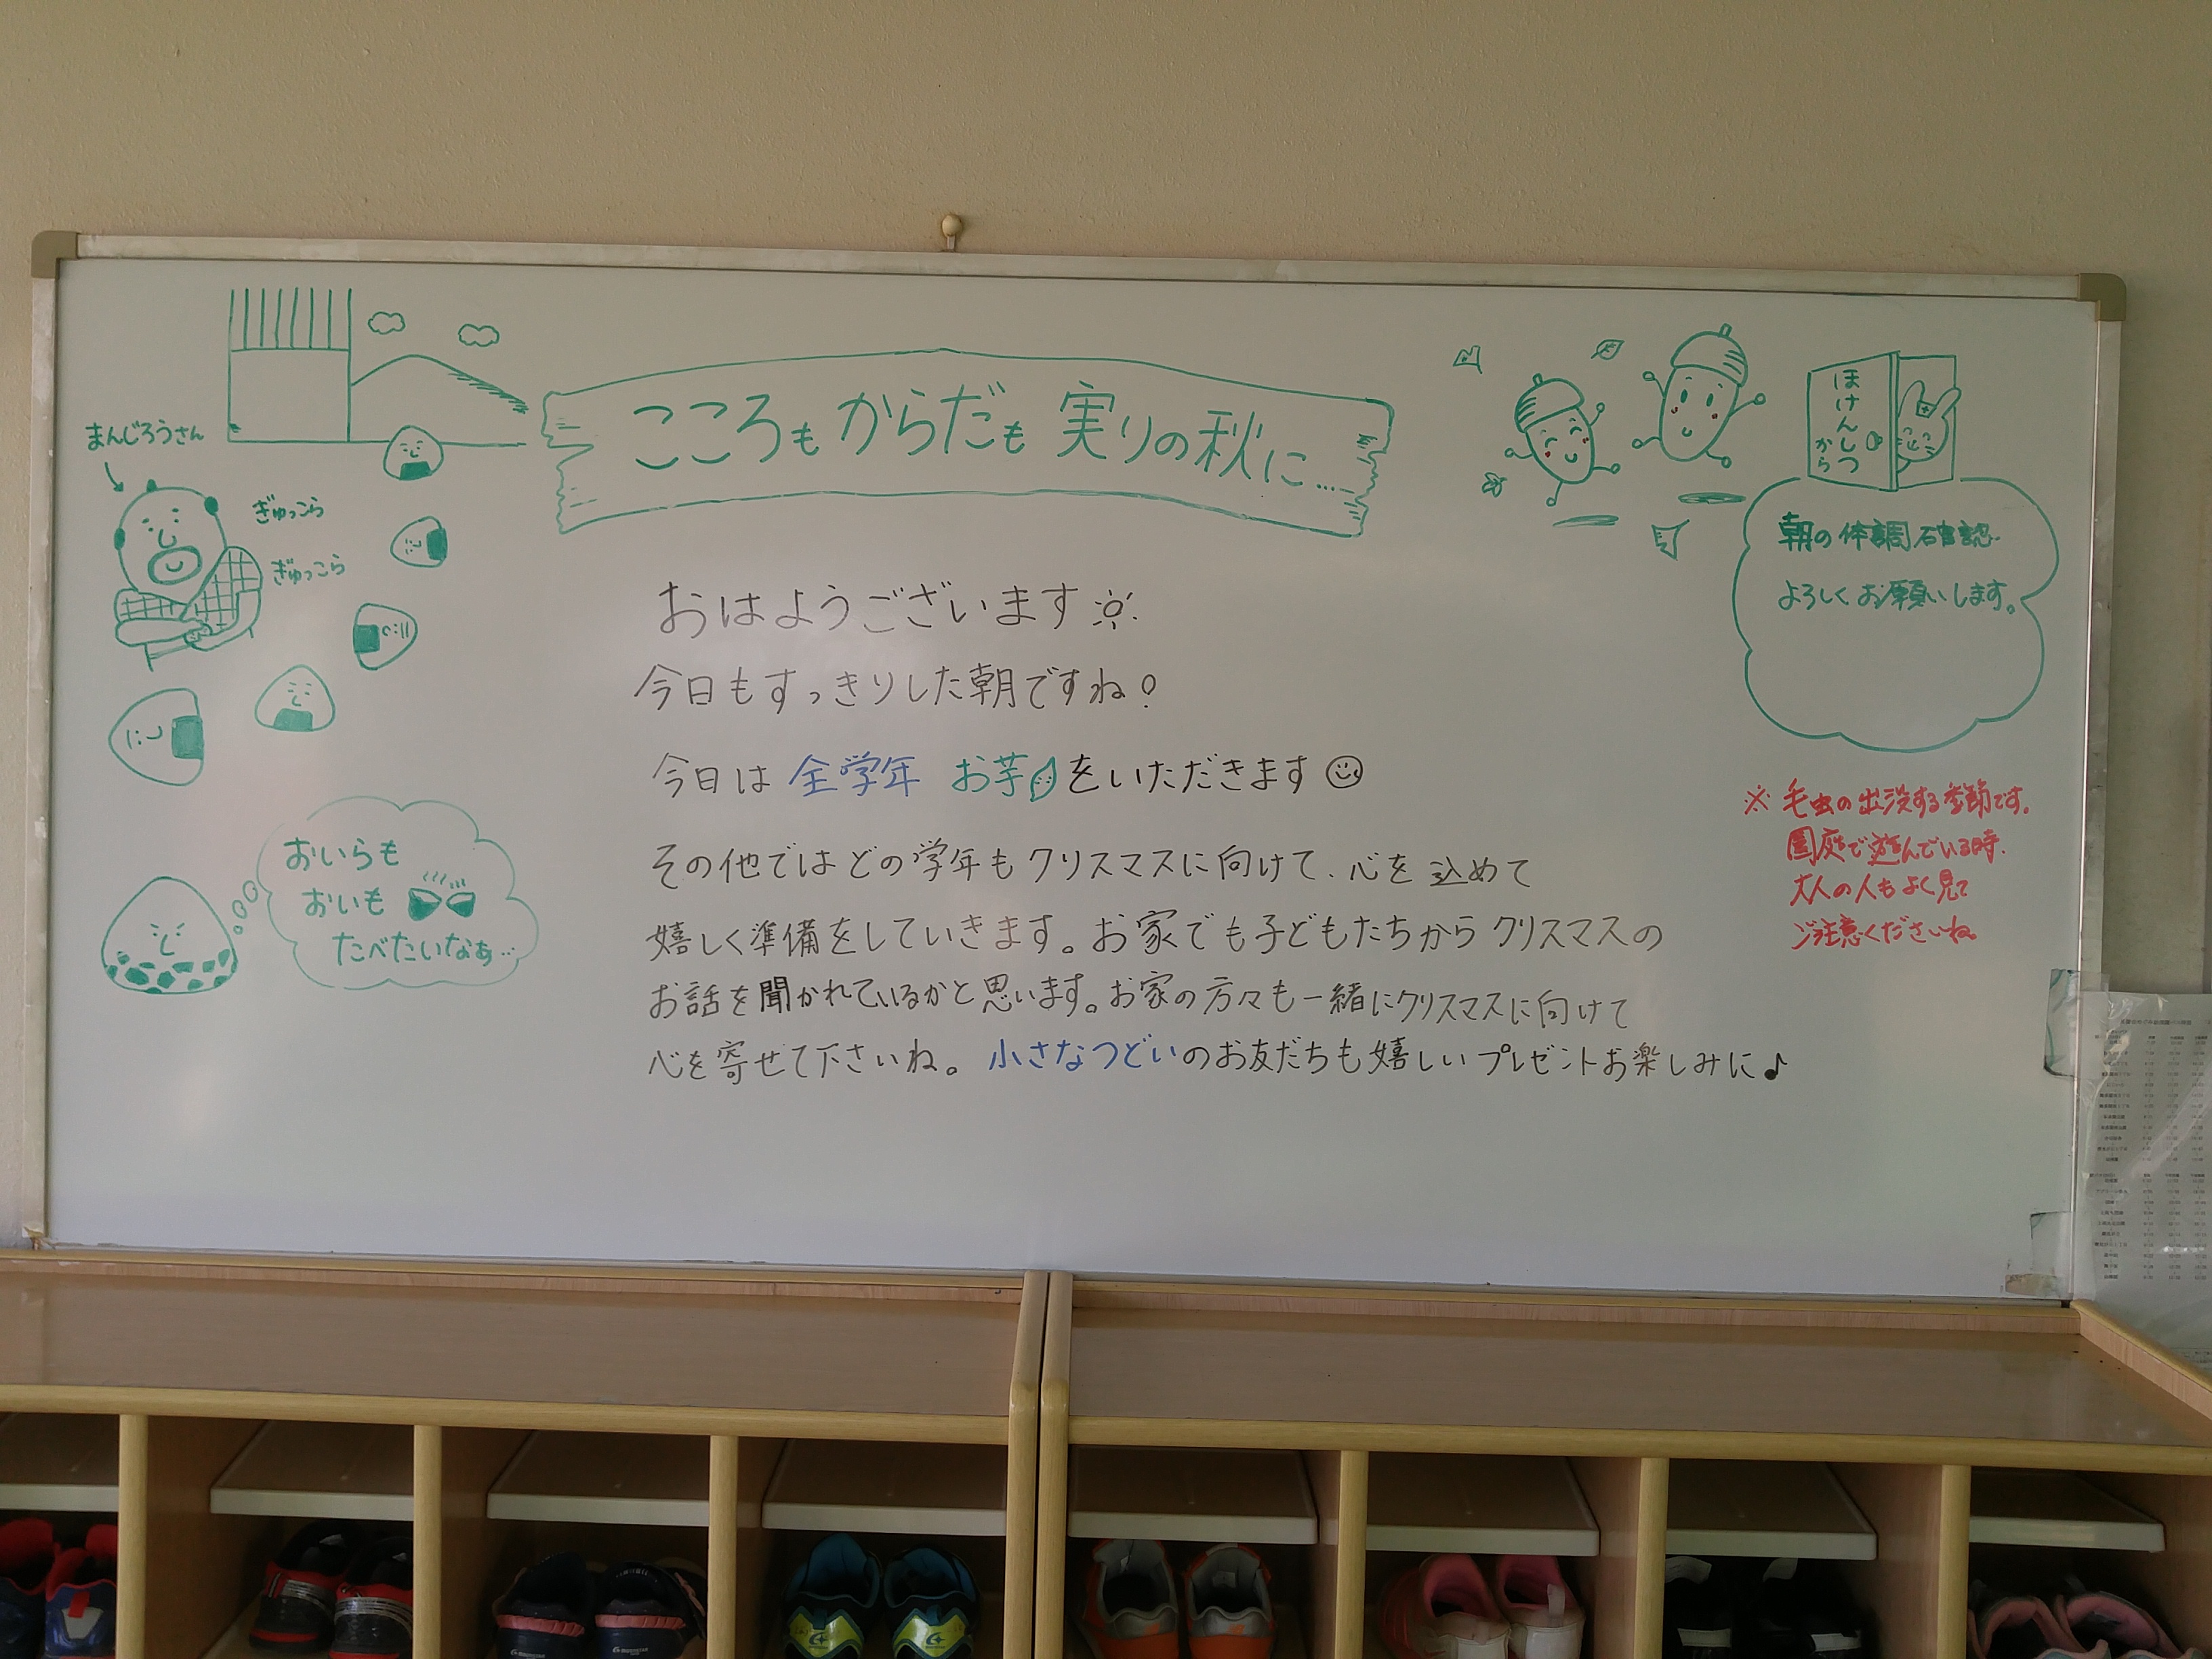 こころもからだも 実りの秋に…
まんじろうさん
ぎゅっこら
ぎゅっこら
おいらも
おいも
たべたいなぁ…
おはようございます
今日もすっきりした朝ですね!
今日は 全学年 お芋をいただきます
その他ではどの学年もクリスマスに向けて、心を込めて
嬉しく準備をしていきます。お家でも子どもたちからクリスマスの
お話を聞かれているかと思います。お家の方々も一緒にクリスマスに向けて
心を寄せて下さいね。小さなつどいのお友だちも嬉しいプレゼントお楽しみに♪
ほけんしつ
から
朝の体調確認
よろしくお願いします。
※毛虫の出没する季節です。
園庭で遊んでいる時、
大人の人もよく見て
ご注意くださいね。